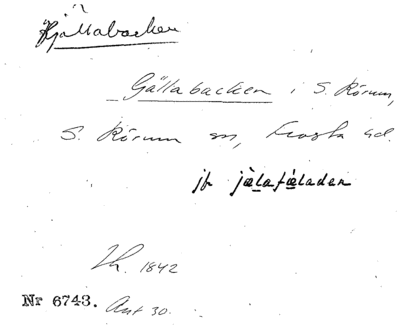 Hjällabacken
Gällabacken i S. Rörum,
S. Rörum sn, Frosta hd.
jfr jälafäladen
Lh. 1842
Nr 6743. Ant 30.